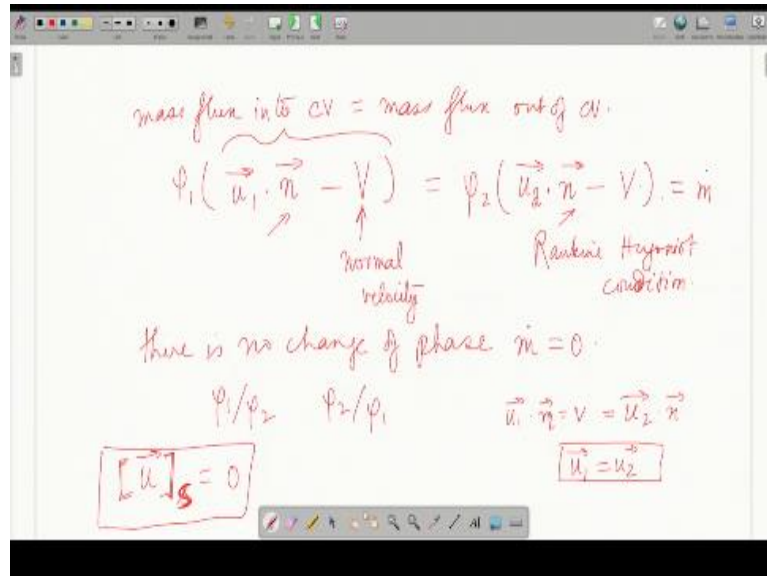 mass flux into CV = mass flux out of CV.
φ₁(u₁⃗ · n⃗ − V) = φ₂(u₂⃗ · n⃗ − V) = ṁ
normal velocity
Rankine Hugoniot condition
there is no change of phase ṁ = 0.
φ₁/φ₂ φ₂/φ₁ u₁⃗ · n⃗ = V = u₂⃗ · n⃗
[u⃗]S = 0 u₁⃗ = u₂⃗